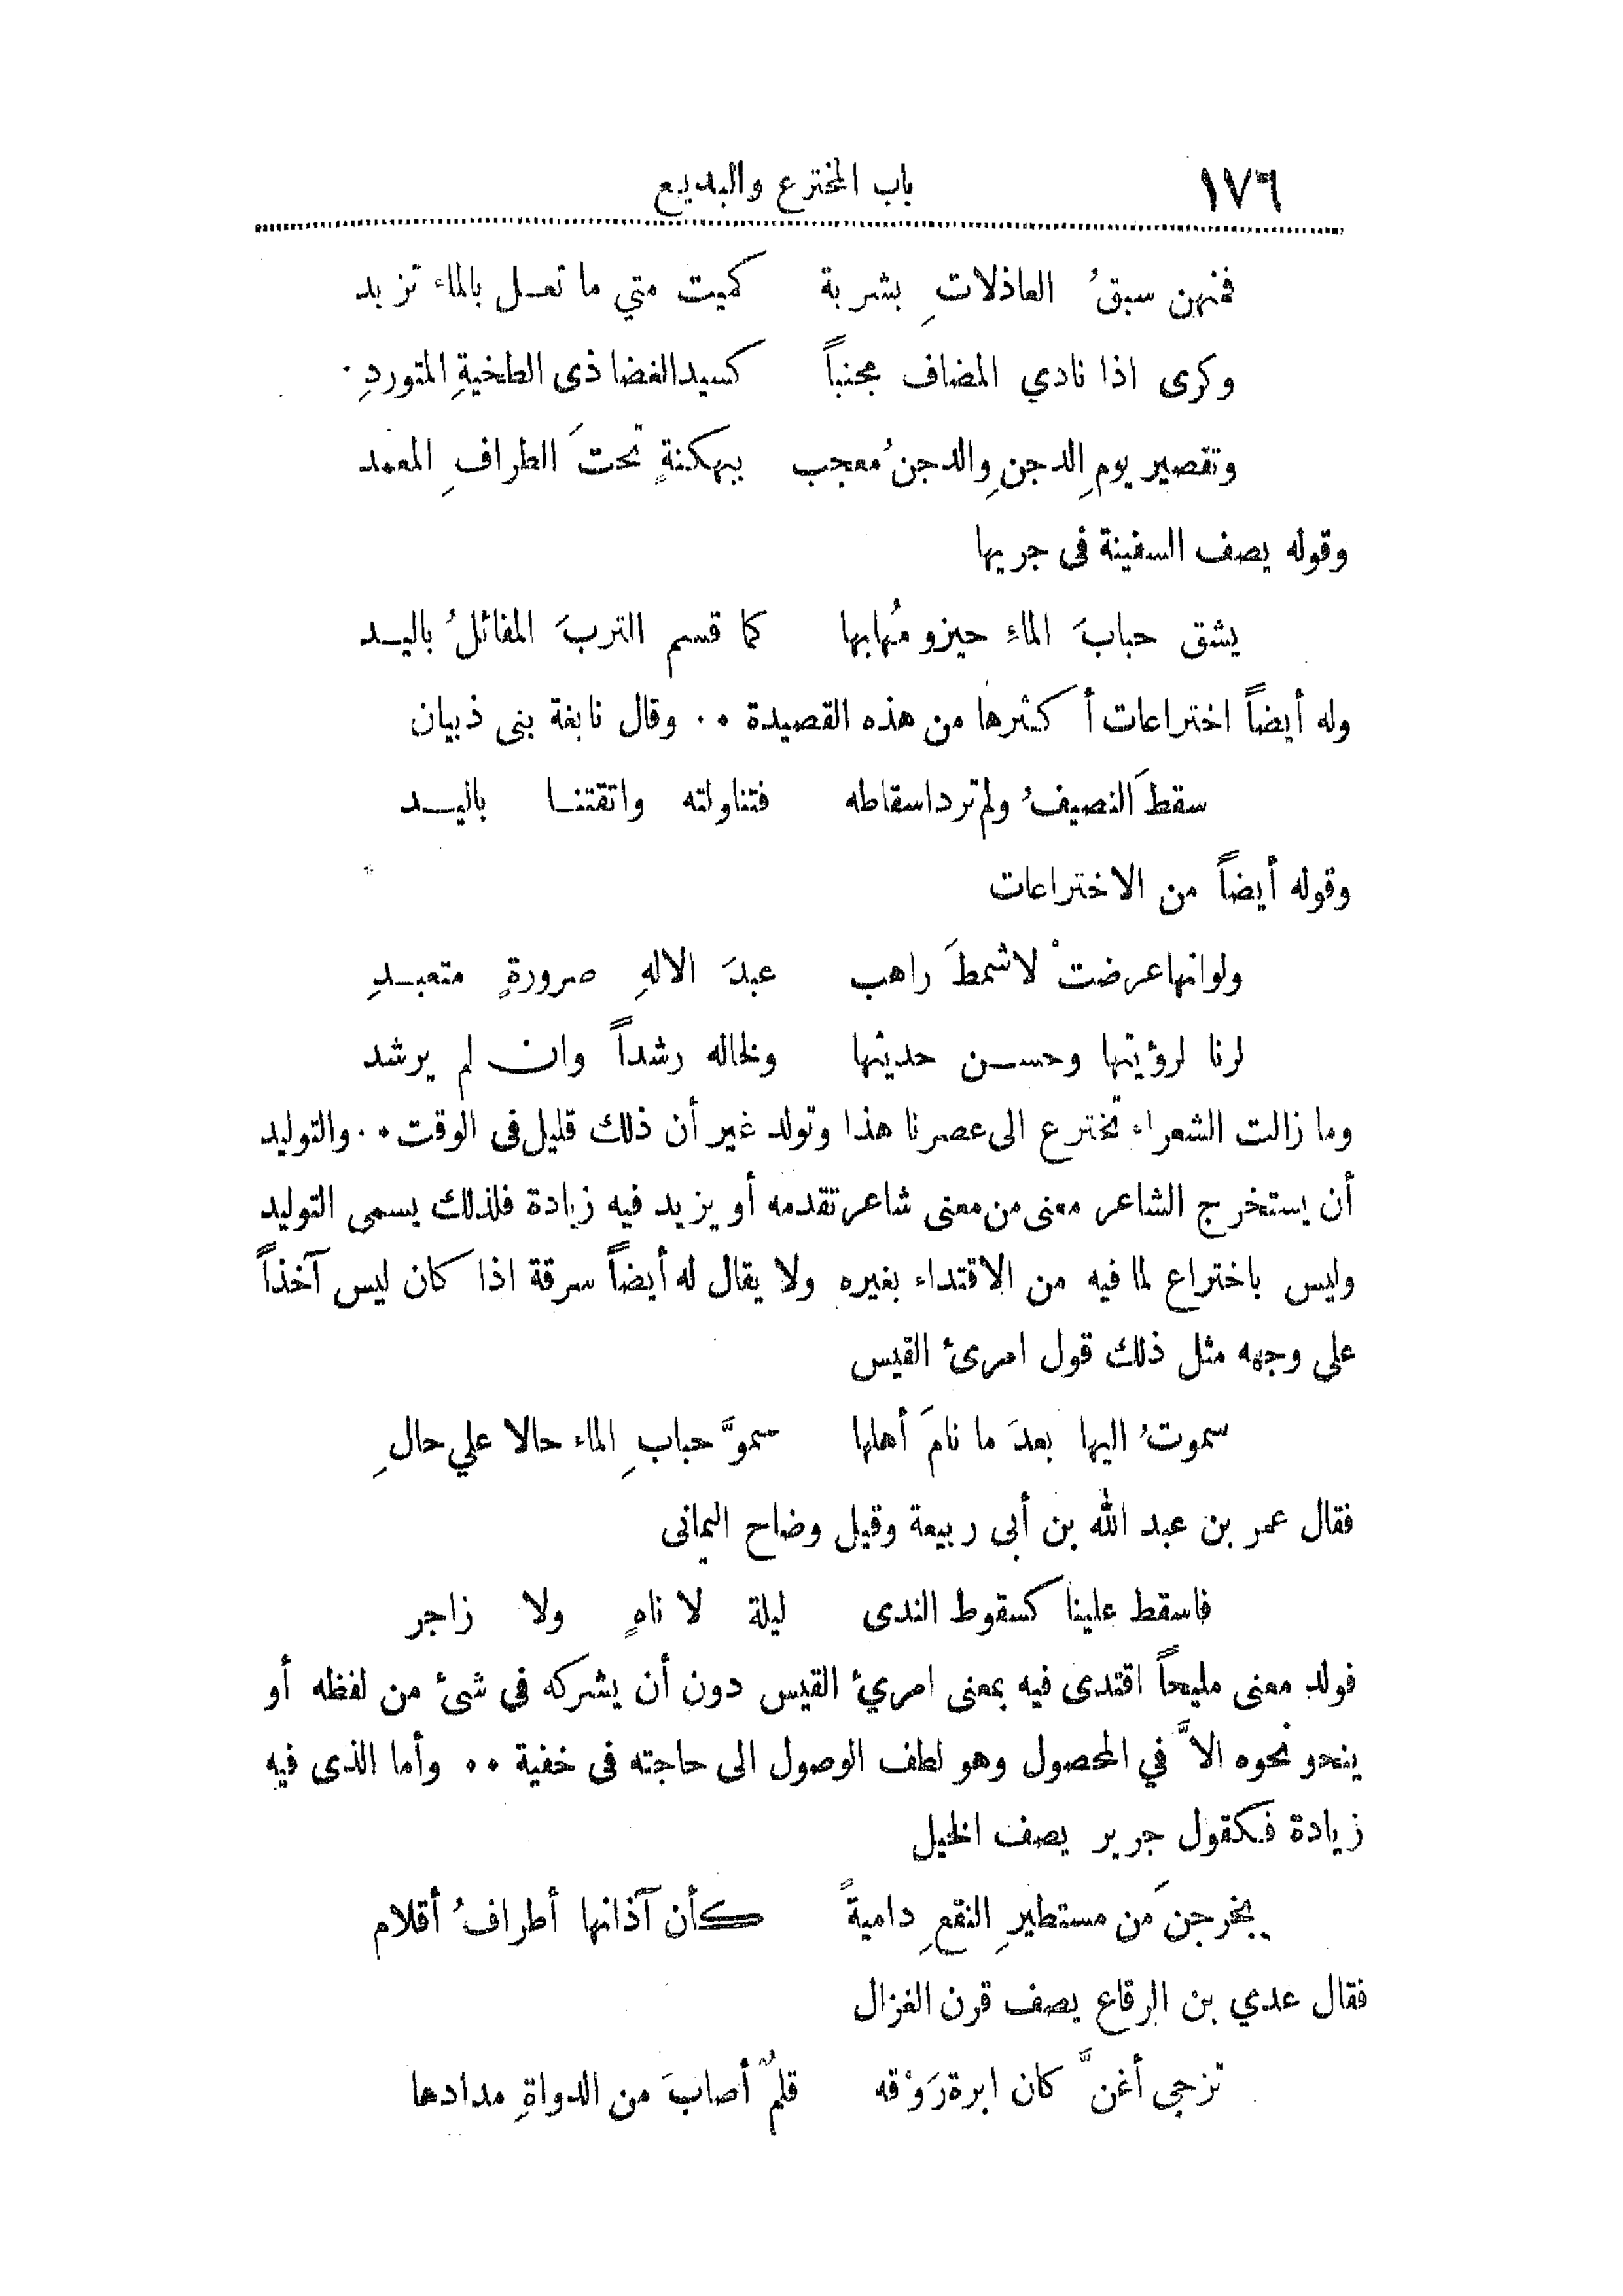 ١٧٦ باب المخترع والبديع
فمنهن سبقُ العاذلاتِ بشربة كميت متي ما تعل بالماء تزبد
وكرى اذا نادي المضاف مجنباً كسيد الغضا ذى الطخيةِ المتوردِ
وتقصير يومِ الدجنِ والدجنُ معجب ببهكنةٍ تحتَ الطرافِ المعمد
وقوله يصف السفينة فى جريها
يشق حبابَ الماءِ حيزومُها بها كما قسم التربَ المفائلُ باليد
وله أيضاً اختراعات أكثرها من هذه القصيدة ٠٠ وقال نابغة بنى ذبيان
سقطَ النصيفُ ولم ترد اسقاطه فتناولته واتقتنا باليد
وقوله أيضاً من الاختراعات
ولو انها عرضتْ لاشمطَ راهب عبدَ الالهِ صرورةٍ متعبدِ
لرنا لرؤيتها وحسن حديثها ولخاله رشداً وان لم يرشد
وما زالت الشعراء تخترع الى عصرنا هذا وتولد غير أن ذلك قليل فى الوقت ٠٠ والتوليد
أن يستخرج الشاعر معنى من معنى شاعر تقدمه أو يزيد فيه زيادة فلذلك يسمى التوليد
وليس باختراع لما فيه من الاقتداء بغيره ولا يقال له أيضاً سرقة اذا كان ليس آخذاً
على وجهه مثل ذلك قول امرئ القيس
سموتُ اليها بعدَ ما نامَ أهلها سموَّ حبابِ الماء حالا علي حالِ
فقال عمر بن عبد الله بن أبى ربيعة وقيل وضاح اليمانى
فاسقط علينا كسقوط الندى ليلة لا ناهٍ ولا زاجر
فولد معنى مليحاً اقتدى فيه بمعنى امرئ القيس دون أن يشركه في شئ من لفظه أو
ينحو نحوه الاَّ في المحصول وهو لطف الوصول الى حاجته فى خفية ٠٠ وأما الذى فيه
زيادة فكقول جرير يصف الخيل
يخرجنَ من مستطيرِ النقعِ داميةً كأن آذانها أطرافُ أقلام
فقال عدي بن الرقاع يصف قرن الغزال
تزجى أغنَّ كان ابرة رَوْقه قلمٌ أصابَ من الدواةِ مدادها